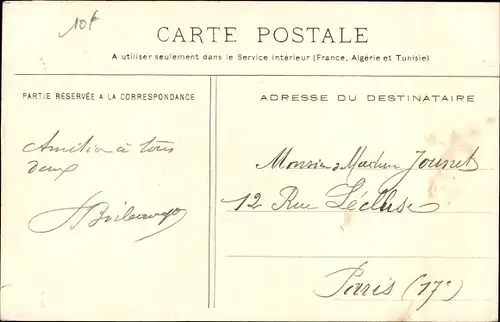 10f
CARTE POSTALE
A utiliser seulement dans le Service Intérieur (France, Algérie et Tunisie)
PARTIE RÉSERVÉE A LA CORRESPONDANCE
ADRESSE DU DESTINATAIRE
à tous
deux
Monsieur & Madame
12 Rue Lécluse
Paris (17e)